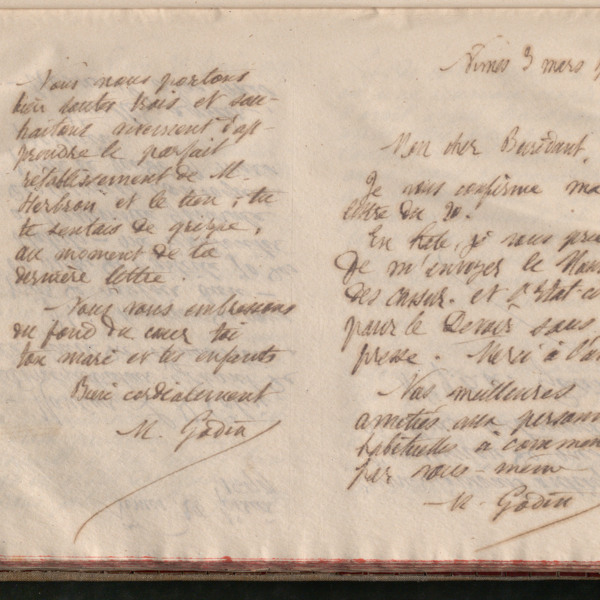 Nous nous portons
bien toutes trois et sou-
haitons vivement d'ap-
prendre le parfait
rétablissement de M.
et le tien ; tu
te sentais de grippe,
au moment de ta
dernière lettre.
Nous vous embrassons
du fond du cœur toi
ton mari et les enfants
Bien cordialement
M. Godin
Nîmes 3 mars
Mon cher
Je vous confirme ma
lettre du 20.
En hâte, je vous
de m'envoyer le
des et
pour le Devoir sous
presse. Merci à
Nos meilleures
amitiés aux
habituelles à
par vous-même
M. Godin